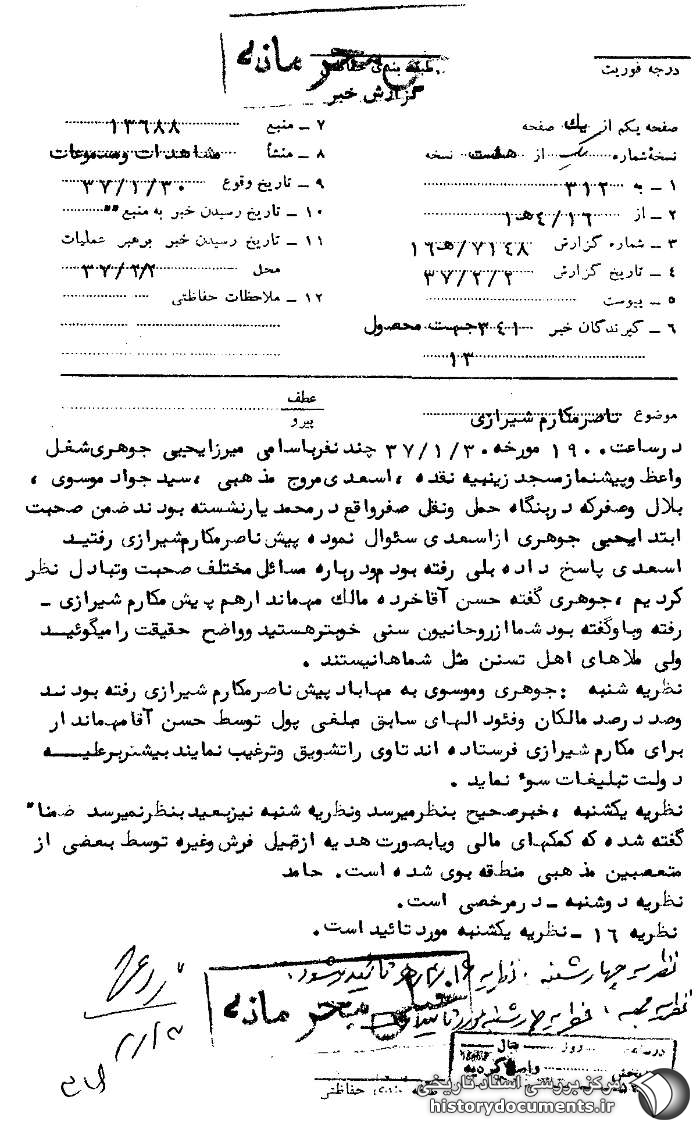 درجه فوریت
طبقه بندی حفاظتی
خیلی محرمانه
گزارش خبر
صفحه یکم از یک صفحه
نسخهٔ شماره یک از هشت نسخه
۱ – به ۳۱۲
۲ – از ۴/۱۶ هـ ۱
۳ – شماره گزارش ۷۱۴۸/هـ ۱۶
۴ – تاریخ گزارش ۳۷/۲/۲
۵ – پیوست
۶ – گیرندگان خبر ۳۴۱ جهت محصول
۱۳
۷ – منبع ۱۳۶۸۸
۸ – منشأ مشاهدات و مسموعات
۹ – تاریخ وقوع ۳۷/۱/۳۰
۱۰ – تاریخ رسیدن خبر به منبع "
۱۱ – تاریخ رسیدن خبر برهبر عملیات
محل ۳۷/۲/۲
۱۲ – ملاحظات حفاظتی
عطف
پیرو
موضوع ناصرمکارم شیرازی
درساعت ۱۹۰۰ مورخه ۳۷/۱/۳۰ چند نفرباسامی میرزایحیی جوهری شغل
واعظ وپیشنماز مسجد زینبیه نقده ، اسعدی مروج مذهبی ، سید جواد موسوی ،
بلال وصفرکه دربنگاه حمل ونقل صفرواقع درمحمد یارنشسته بودند ضمن صحبت
ابتدا یحیی جوهری ازاسعدی سئوال نموده پیش ناصرمکارم شیرازی رفتید
اسعدی پاسخ داده بلی رفته بودم ودرباره مسائل مختلف صحبت وتبادل نظر
کردیم ، جوهری گفته حسن آقاخرده مالک مهماندارهم پیش مکارم شیرازی –
رفته وباوگفته بود شما ازروحانیون سنی خوبترهستید وواضح حقیقت رامیگوئید
ولی ملاهای اهل تسنن مثل شماهانیستند .
نظریه شنبه : جوهری وموسوی به مهاباد پیش ناصرمکارم شیرازی رفته بودند
وصد درصد مالکان وفئودالهای سابق مبلغی پول توسط حسن آقامهماندار
برای مکارم شیرازی فرستاده اند تاوی راتشویق وترغیب نمایند بیشتربرعلیه
دولت تبلیغات سوء نماید .
نظریه یکشنبه ، خبرصحیح بنظرمیرسد ونظریه شنبه نیزبعیدبنظرنمیرسد ضمنا"
گفته شده که کمکهای مالی ویابصورت هدیه ازقبیل فرش وغیره توسط بعضی از
متعصبین مذهبی منطقه بوی شده است . حامد
نظریه دوشنبه – درمرخصی است .
نظریه ۱۶ – نظریه یکشنبه مورد تائید است .
نظریه چهارشنبه .
خیلی محرمانه
طبقه بندی حفاظتی
مرکز بررسی اسناد تاریخی
historydocuments.ir